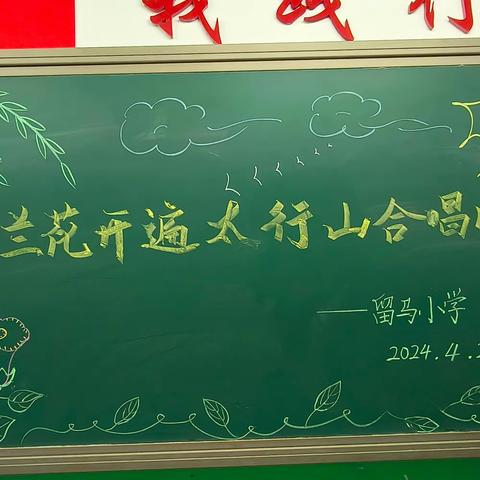 我 践 行
兰花开遍太行山合唱
——留马小学
2024.4.2